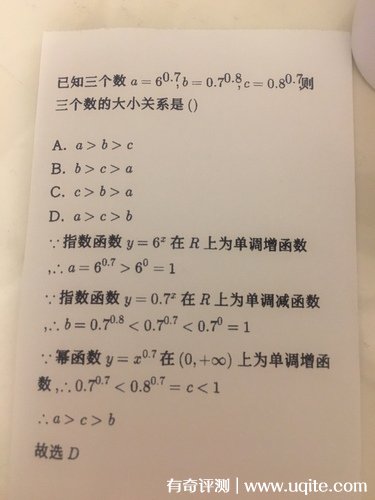 已知三个数 a = 6^0.7, b = 0.7^0.8, c = 0.8^0.7,则
三个数的大小关系是 ()
A. a > b > c
B. b > c > a
C. c > b > a
D. a > c > b
∵指数函数 y = 6^x 在 R 上为单调增函数
,∴ a = 6^0.7 > 6^0 = 1
∵指数函数 y = 0.7^x 在 R 上为单调减函数
,∴ b = 0.7^0.8 < 0.7^0.7 < 0.7^0 = 1
∵幂函数 y = x^0.7 在 (0, +∞) 上为单调增函
数 ,∴ 0.7^0.7 < 0.8^0.7 = c < 1
∴ a > c > b
故选 D
有奇评测 | www.uqite.com